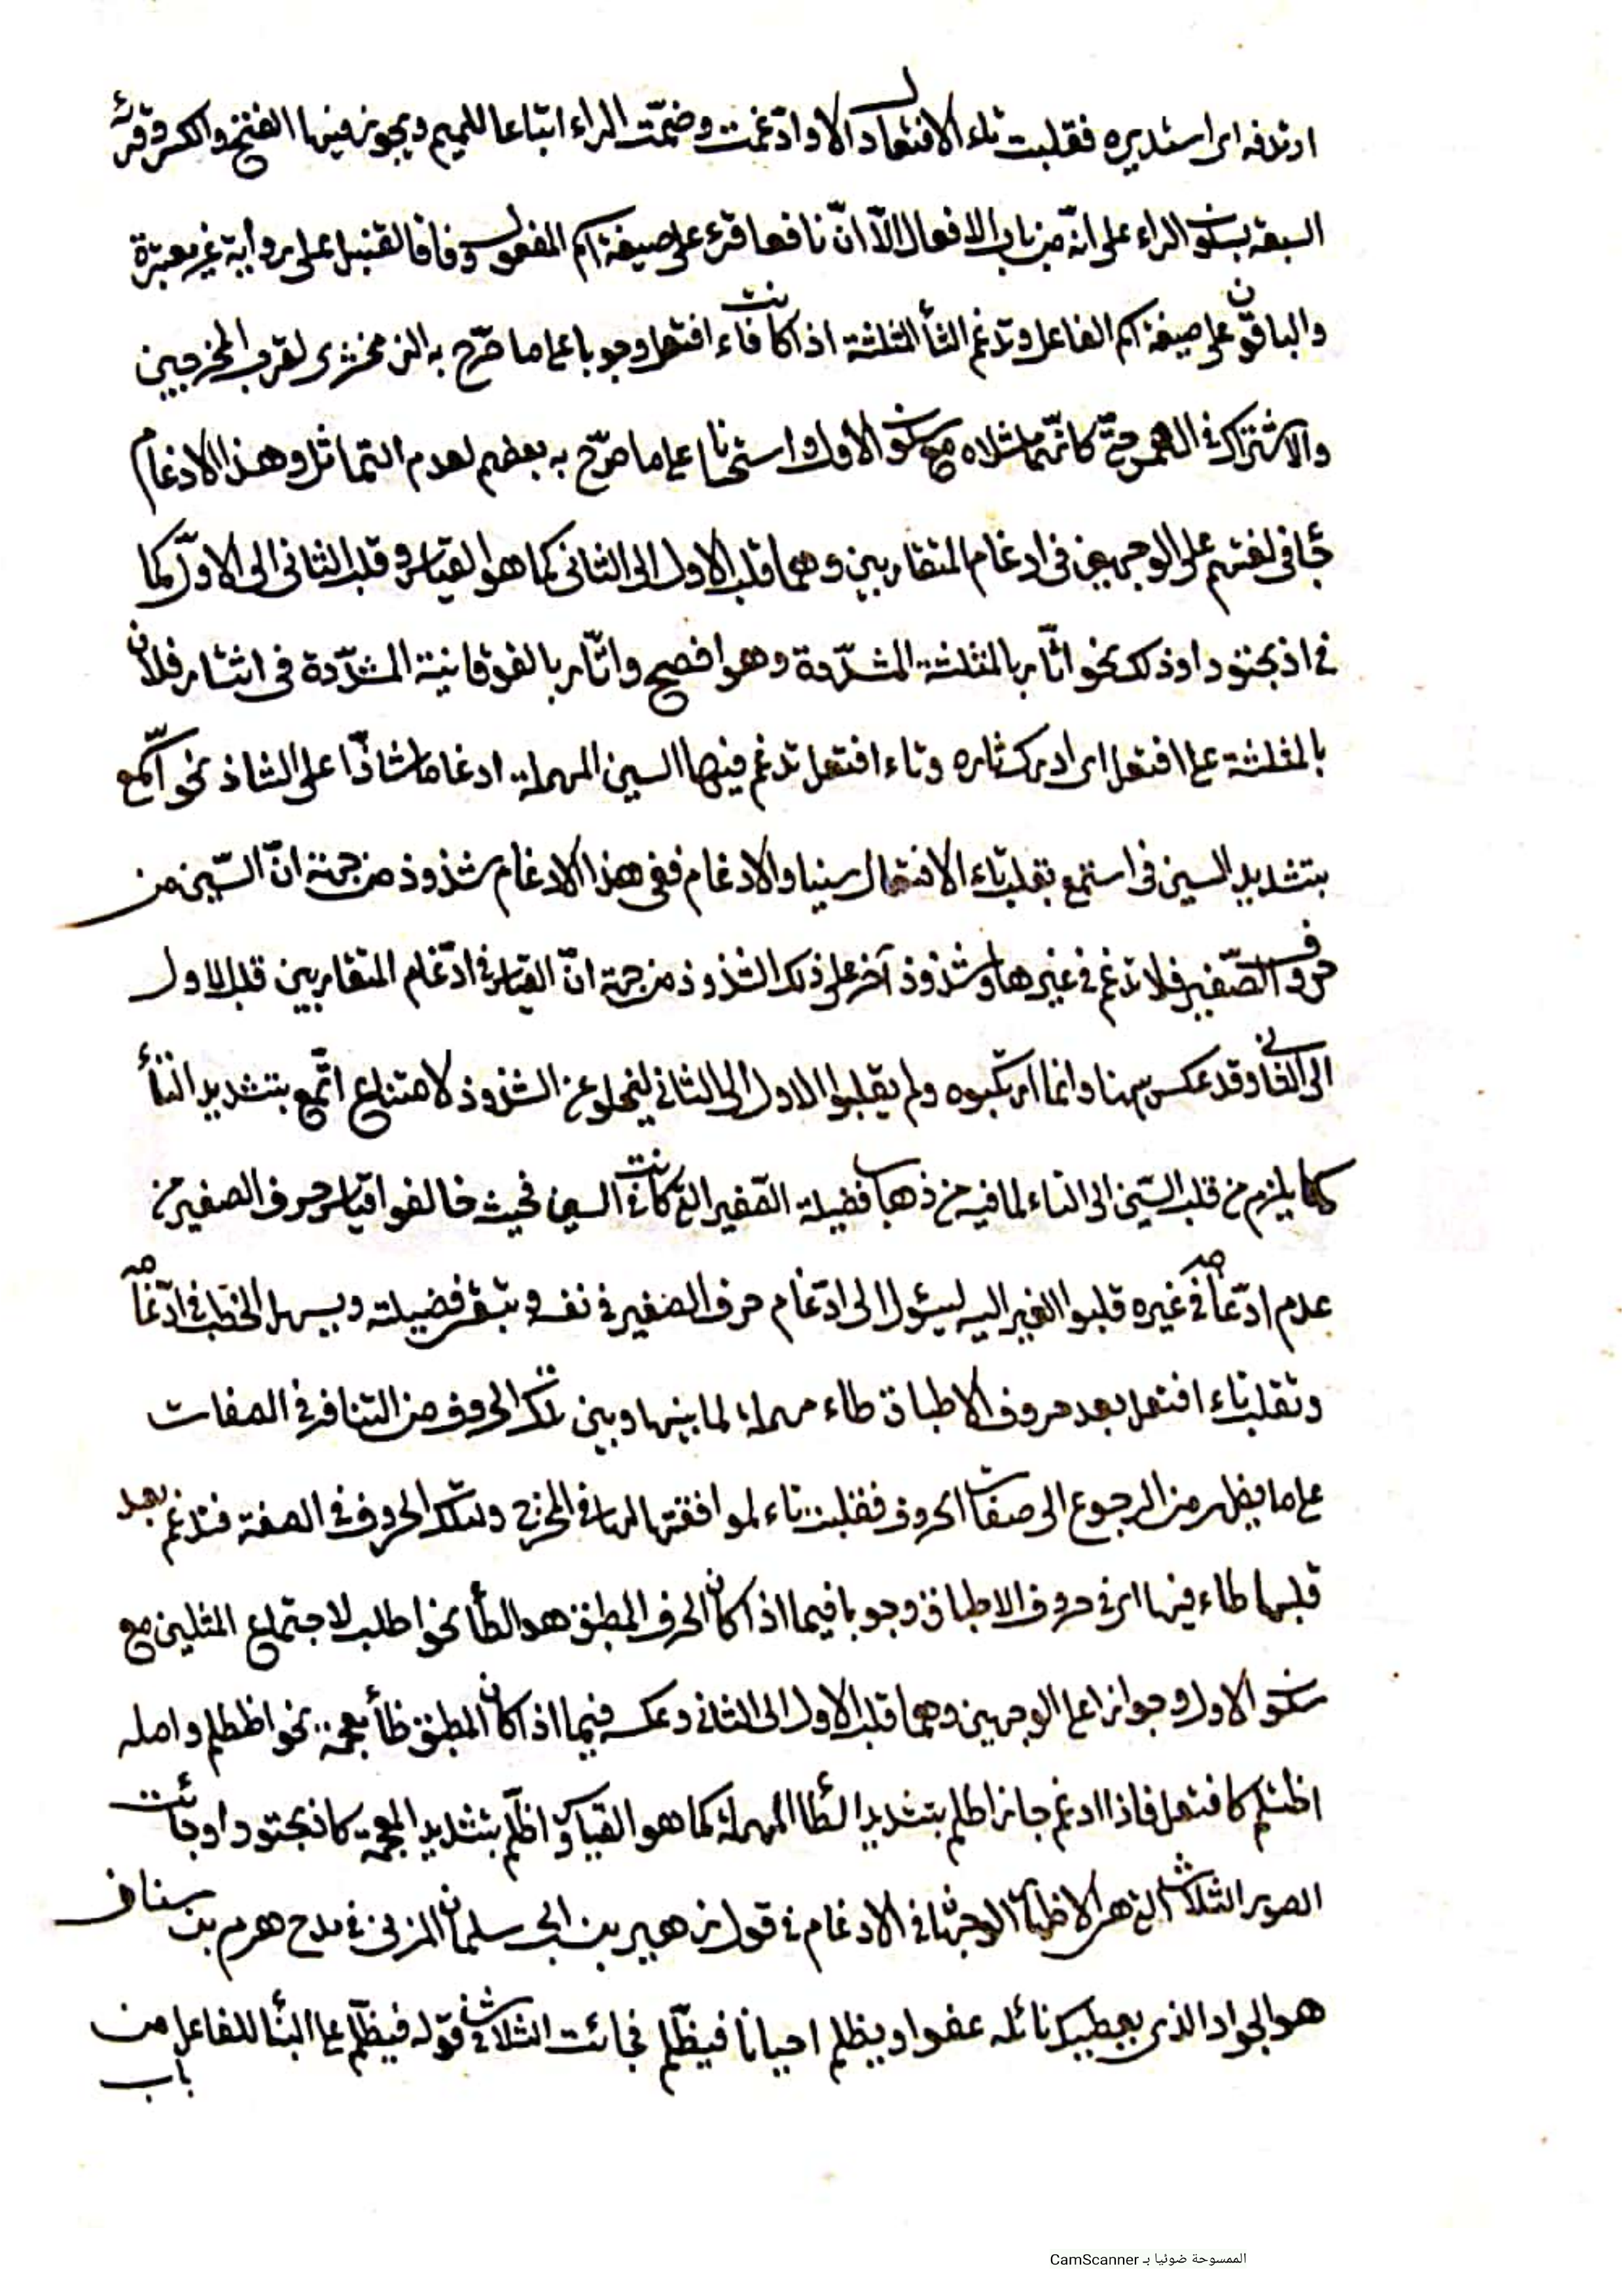 ارتدفه اى استدبره فقلبت تاء الافتعال دالا وادّغمت وضمّت الراء اتباعا للميم ويجوز فيها الفتح والكسر وقرئه
السبعة بسكون الراء على انّه من باب الافعال الّا انّ نافعا قرء على صيغة اسم المفعول وفاقا لقنبل على رواية غير معتبرة
والباقون على صيغة اسم الفاعل وتدغم الثأ المثلثة اذا كانت فاء افتعل وجوبا على ما صرّح به الزمخشرى لقرب المخرجين
والاشتراك فى الهمس حتّى كانّهما مثلاه مع سكون الأول واستحسانا على ما صرّح به بعضهم لعدم التماثل وهذا الادغام
جأ فى لغتهم على الوجهين فى ادغام المتقاربين وهما قلب الاول الى الثانى كما هو القياس وقلب الثانى الى الاوّل كما
فى اذبحتودا وذلك نحو اثّار بالمثلثة المشدّدة وهو افصح واتّار بالفوقانية المشدّدة فى اثتار فلان
بالمثلثة على افتعل اى ادرك ثاره وتاء افتعل تدغم فيها السين المهملة ادغاما شاذّا على الشاذ نحو اسّمع
بتشديد السين فى استمع بقلب تاء الافتعال سينا والادغام ففى هذا الادغام شذوذ من جهة انّ السّين من
حروف الصّفير فلا تدغم فى غيرها وشذوذ آخر على ذلك الشذوذ من جهة انّ القياس فى ادّغام المتقاربين قلب الاول
الى الثانى وقد عكس هنا وانما ارتكبوه ولم يقلبوا الاول الى الثانى ليخلو عن الشذوذ لامتناع اتّمع بتشديد التأ
كما يلزم من قلب السّين الى التاء لما فيه من ذهاب فضيلة الصّفير التى كانت فى السين فحيث خالفوا قياس حروف الصفير من
عدم ادّغامه فى غيره قلبوا الغير اليه ليئول الى ادّغام حرف الصفير فى نفسه وتبقى فضيلته ويسهل الخطب فى ادّغامه
وتقلب تاء افتعل بعد حروف الاطباق طاء مهملة لما بينها وبين تلك الحروف من التنافر فى الصفات
على ما يظهر من الرجوع الى صفات الحروف فقلبت تاء لموافقتها لها فى المخرج ولتلك الحروف فى الصفة فتدغم بعد
قلبها طاء فيها اى فى حروف الاطباق وجوبا فيما اذا كان الحرف المطبق هو الطأ نحو اطلب لاجتماع المثلين مع
سكون الاول وجوازا على الوجهين وهما قلب الاول الى الثانى وعكسه فيما اذا كان المطبق ظأ معجمة نحو اظطلم واصله
اظتلم كافتعل فاذا ادغم جاز اطلم بتشديد الطأ المهملة كما هو القياس واظّلم بتشديد المعجمة كاذبحتودا وجائت
الصور الثلاث التى هى الاظهار والوجهان فى الادغام فى قول زهير بن ابى سلمان المزنى فى مدح هرم بن سنان
هو الجواد الذى يعطيك نائله عفوا ويظلم احيانا فيظّلم فجائت الثلاث فى قوله فيظّلم على البنأ للفاعل من
باب
الممسوحة ضوئيا بـ CamScanner